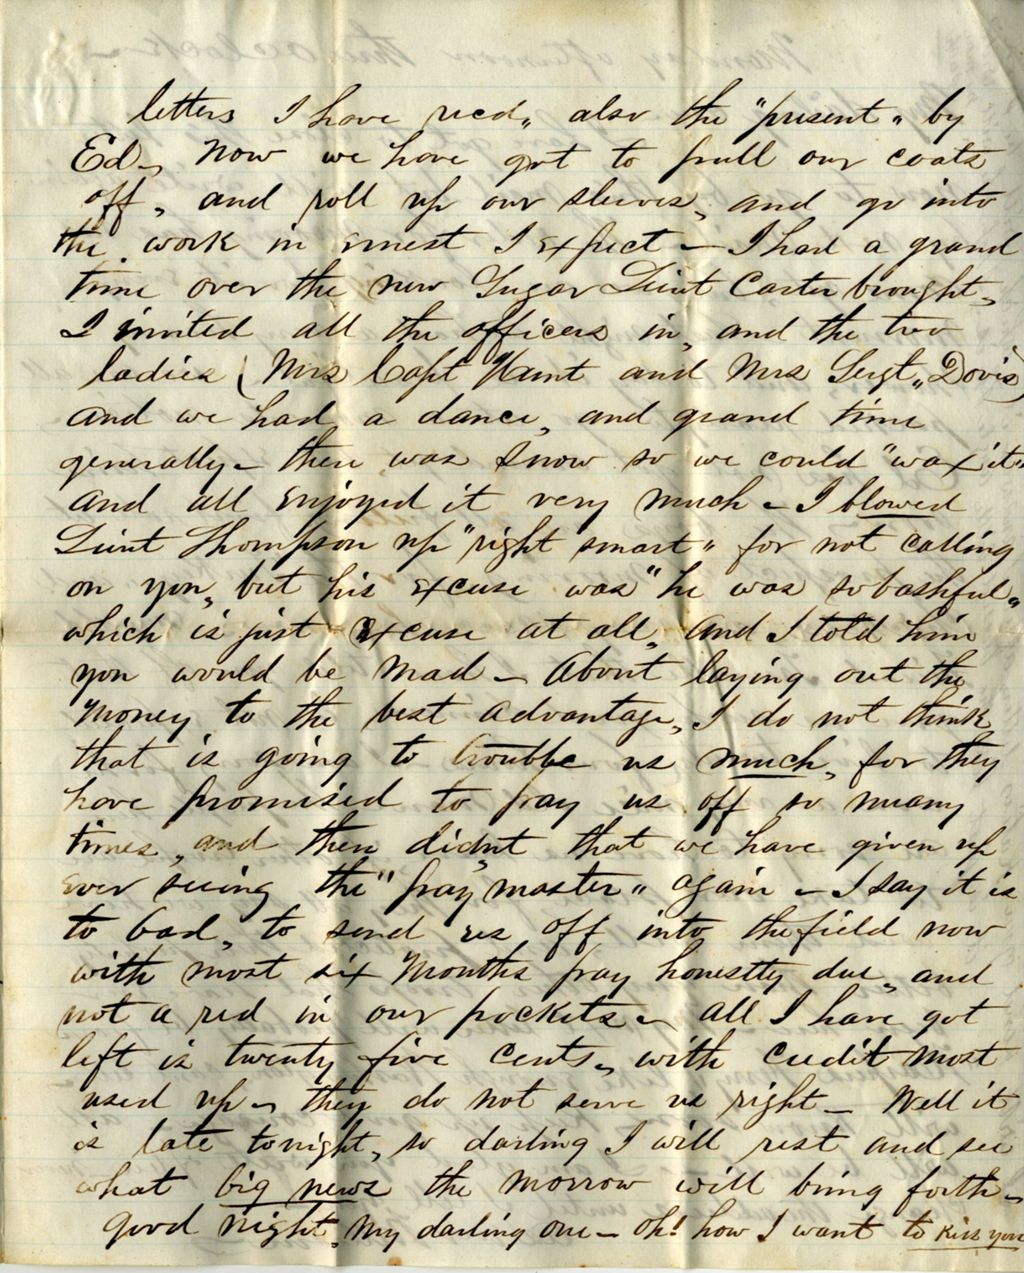 letters I have recd, also the "present" by
Ed - Now we have got to pull our coats
off, and roll up our sleeves, and go into
the work in ernest I expect - I had a grand
time over the new Sugar Lieut Carter brought,
I invited all the officers in, and the two
ladies (Mrs Capt Hunt and Mrs Sergt, Davis)
and we had a dance, and grand time
generally - there was snow so we could "wax it"
and all enjoyed it very much - I blowed
Lieut Thompson up "right smart" for not calling
on you, but his excuse was "he was so bashful"
which is just excuse at all, and I told him
you would be mad - About laying out the
money to the best advantage, I do not think
that is going to trouble us much, for they
have promised to pay us off so many
times, and then didn't that we have given up
ever seeing the "pay master" again - I say it is
to bad, to send us off into the field now
with most six months pay honestly due, and
not a red in our pockets - all I have got
left is twenty five cents, with credit most
used up - they do not serve us right - Well it
is late tonight, so darling I will rest and see
what big news the morrow will bring forth -
good night, my darling one - oh! how I want to kiss you